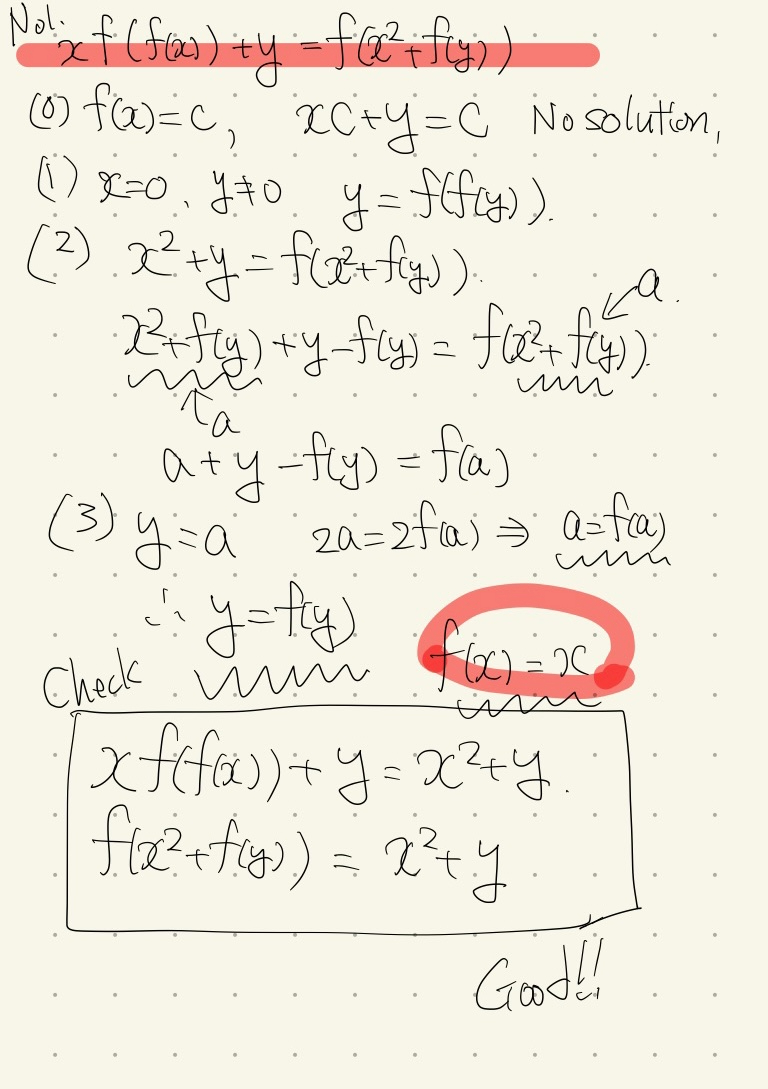 No1.
x f(f(x)) + y = f(x²+f(y))
(0) f(x)=c, xc+y=c No solution,
(1) x=0, y≠0 y=f(f(y)).
(2) x²+y=f(x²+f(y)).
a.
x²+f(y)+y-f(y)=f(x²+f(y)).
a
a+y-f(y)=f(a)
(3) y=a 2a=2f(a) ⇒ a=f(a)
∴ y=f(y)
f(x)=x
Check
x f(f(x))+y=x²+y.
f(x²+f(y))=x²+y
Good!!